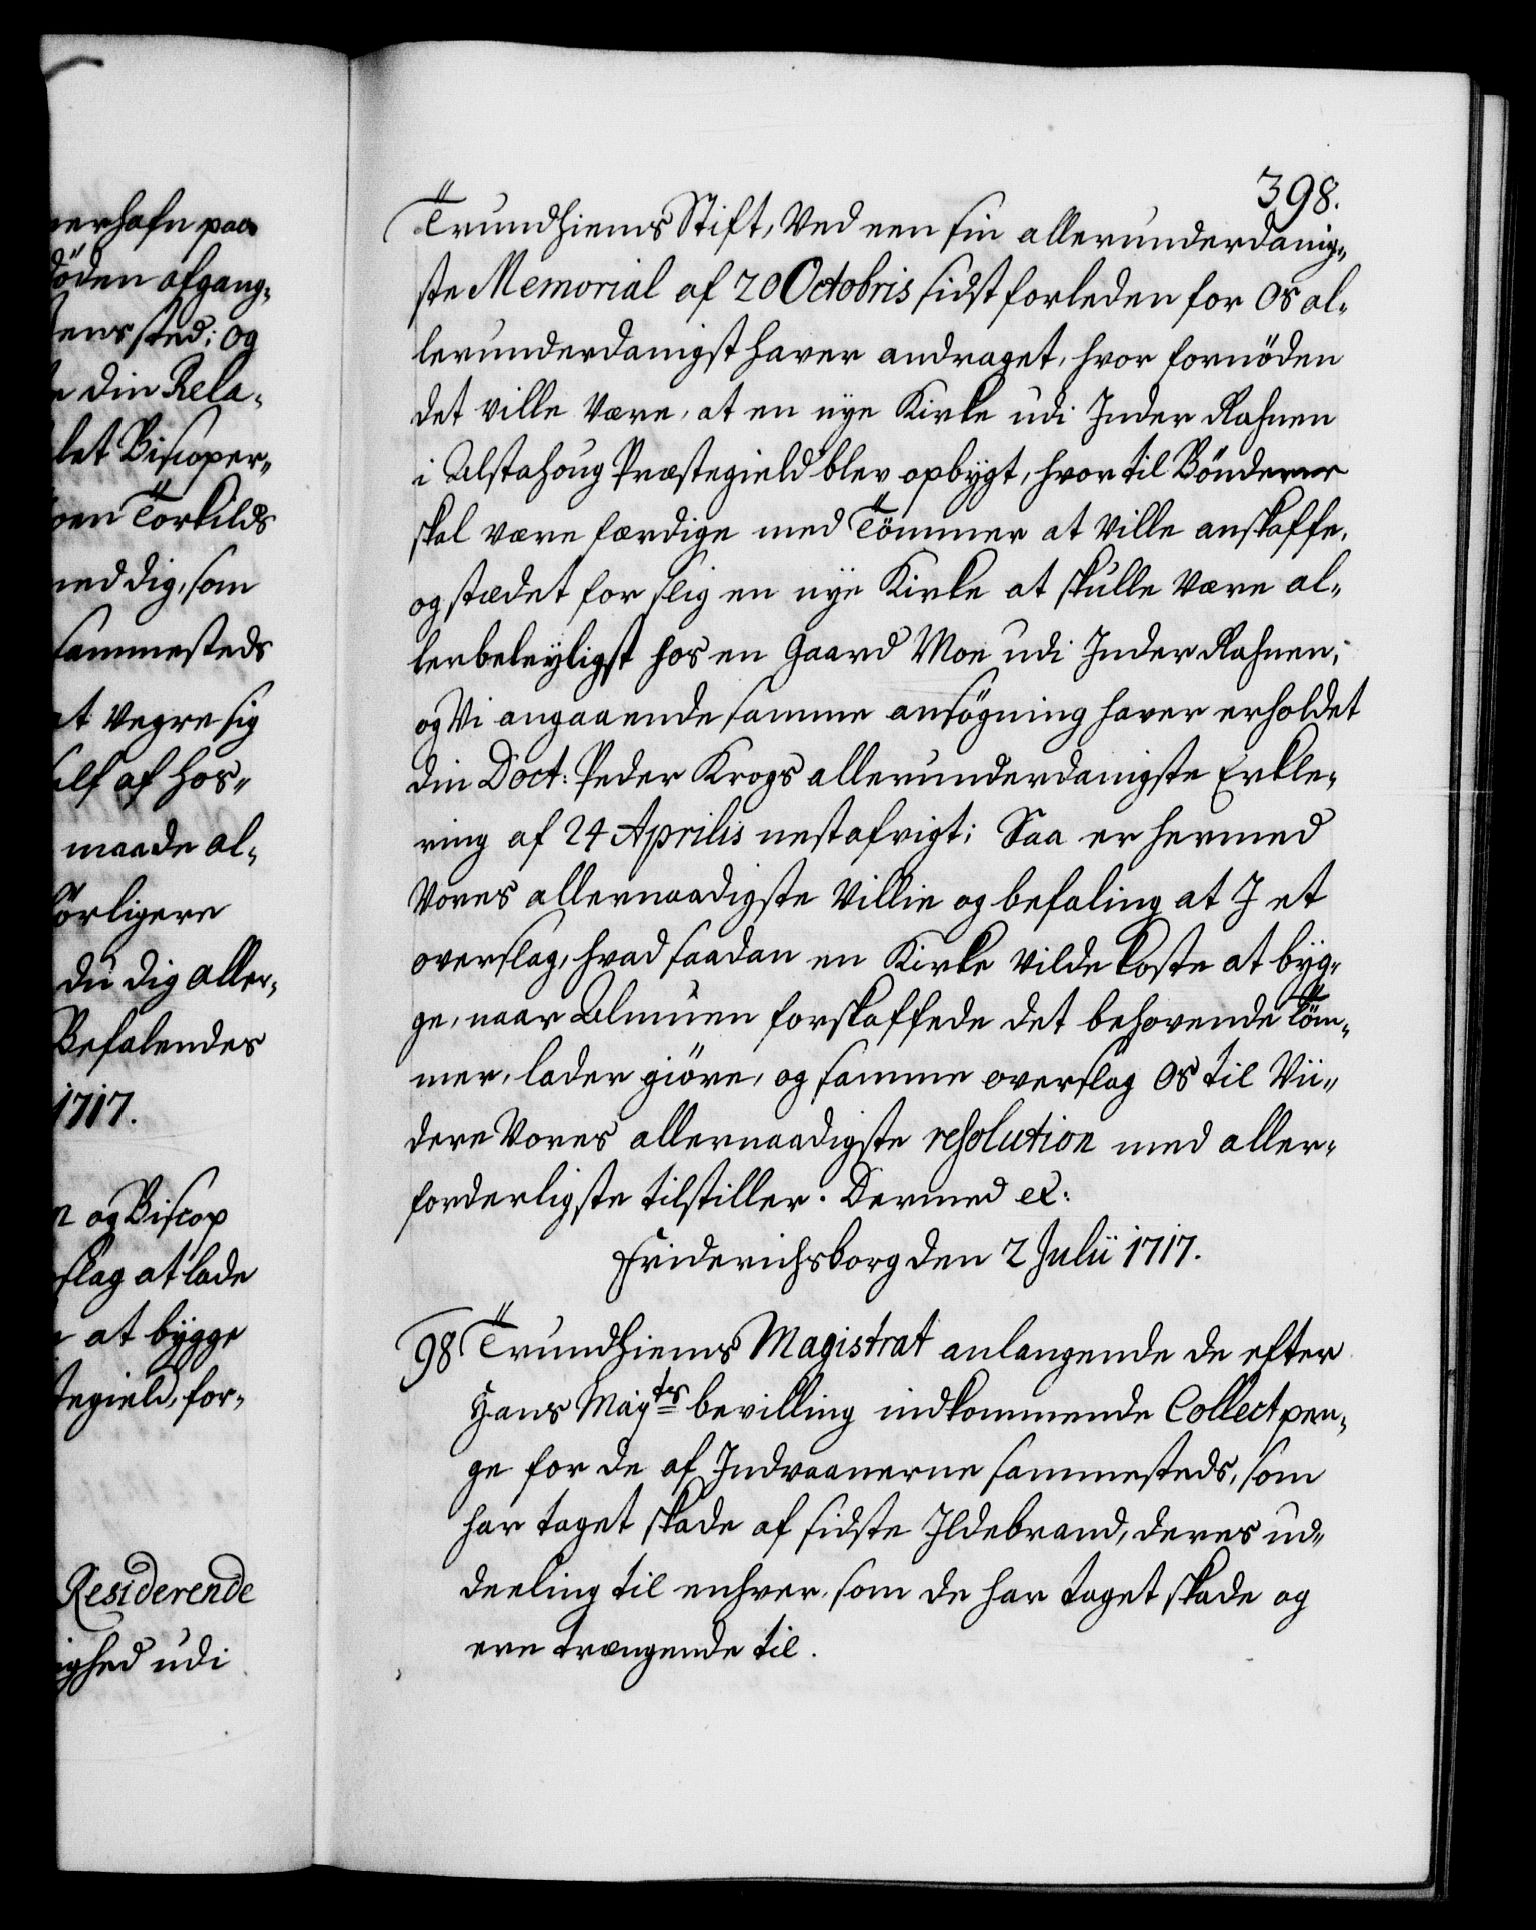 nerhafn paa
döden afgang¬
ens sted; og
e din Rela¬
let Biscoper¬
oen Torkilds
med dig, som
sammesteds
at vegre sig
self af hos¬
maade al¬
förligere
du dig aller¬
Befalendes
1717.
n og Biscop
slag at lade
e at bygge
tegield, for¬
Residerende
ighed udi
398.
Trundhiems Stift, Ved een sin allerunderdanig¬
ste Memorial af 20 Octobris sidstforleden for Os al¬
lerunderdanigst haver andraget, hvor fornöden
det ville være, at en nye Kirke udi Inder Rahnen
i Alstahoug Præstegield blev opbygt, hvor til Bönderne
skal være færdige med Tömmer at ville anskaffe,
og stædet for slig en nye Kirke at skulle være al¬
lerbeleyligst hos en Gaard Moe udi Inder Rahnen;
og Vi angaaende samme ansögning haver erholdet
din Doct: Peder Krogs allerunderdanigste Erkle¬
ring af 24 Aprilis nestafvigt; Saa er hermed
Vores allernaadigste Villie og befaling at I et
overslag, hvad saadan en Kirke vilde koste at byg¬
ge, naar Almuen forskaffede det behovende töm¬
mer, lader giöre, og samme overslag Os til Vii¬
dere Vores allernaadigste resolution med aller¬
forderligste tilstiller. Dermed ex:
Friderichsborg den 2 Julii 1717.
98 Trundhiems Magistrat anlangende de efter
Hans Mayts bevilling indkommende Collect pen¬
ge for de af Indvaanerne sammesteds, som
har taget skade af sidste Ildebrand, deres ud¬
deeling til enhver, som de har taget skade og
ere trængende til.